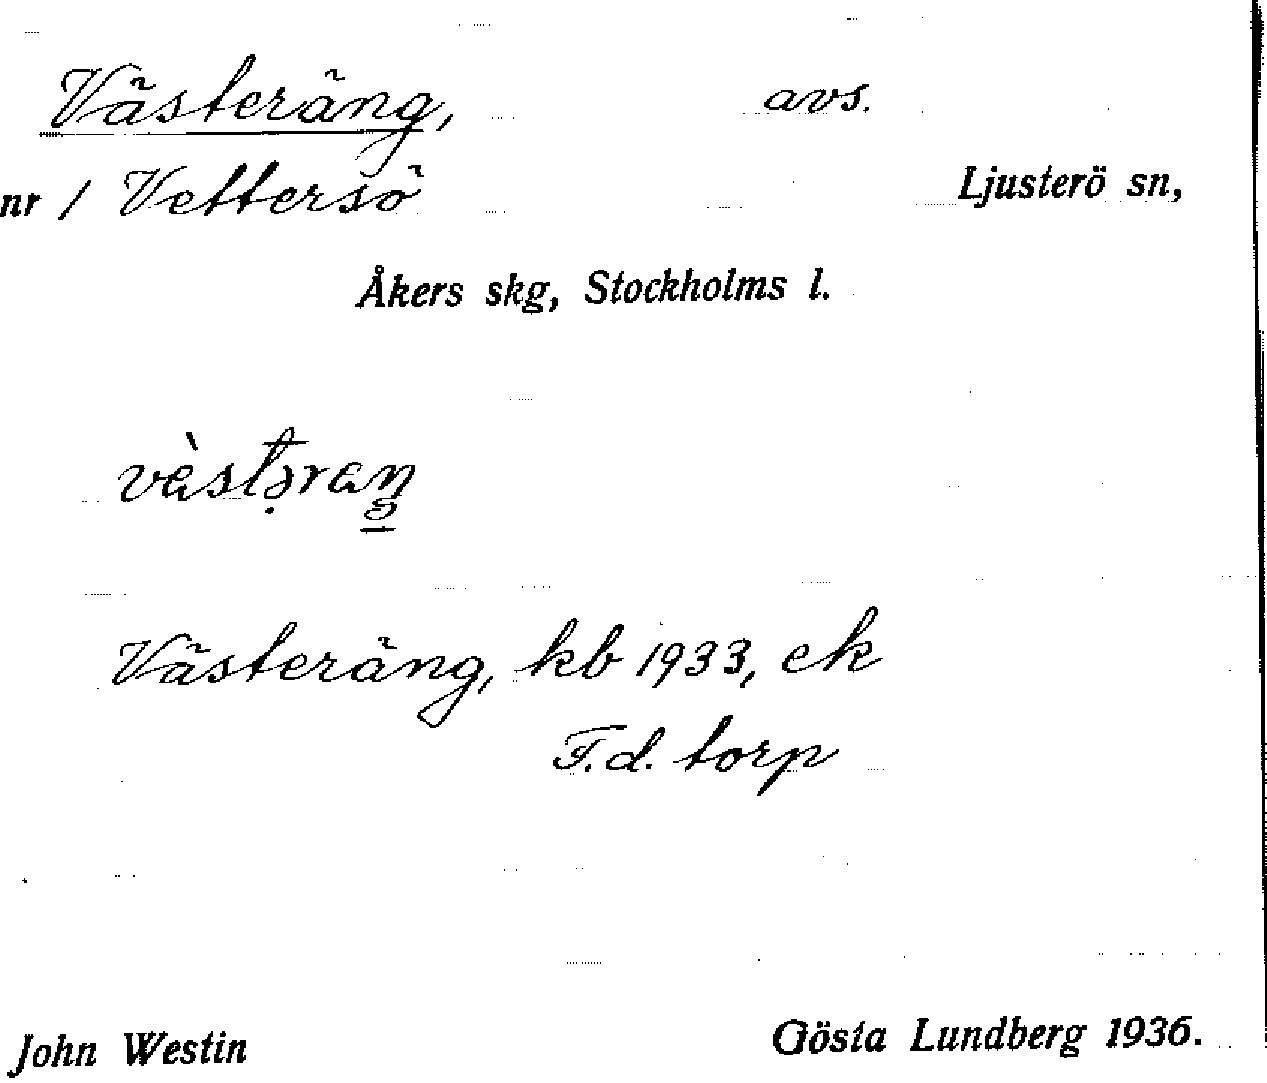 Västeräng, avs.
nr 1 Vettersö Ljusterö sn,
Åkers skg, Stockholms l.
Västeräng, kb 1933, ek
F.d. torp
John Westin Gösta Lundberg 1936.